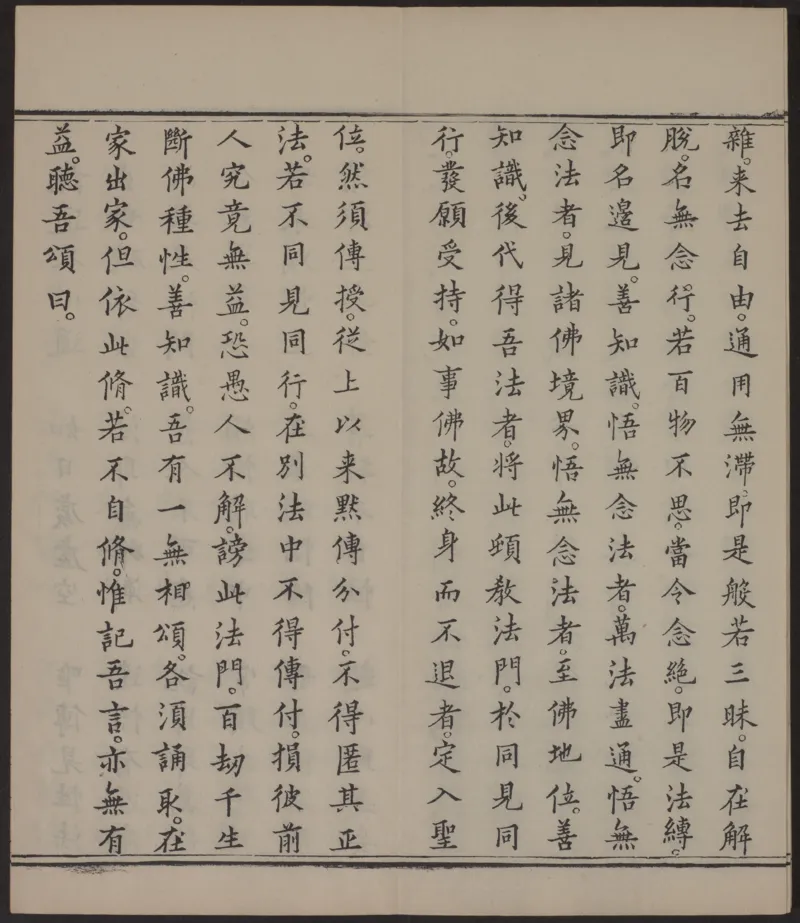 雜。来去自由。通用無滯。即是般若三昧。自在解
脫。名無念行。若百物不思。當令念絕。即是法縛。
即名邊見。善知識。悟無念法者。萬法盡通。悟無
念法者。見諸佛境界。悟無念法者。至佛地位。善
知識。後代得吾法者。將此頓教法門。於同見同
行。發願受持。如事佛故。終身而不退者。定入聖
位。然須傳授。從上以来默傳分付。不得匿其正
法。若不同見同行。在別法中不得傳付。損彼前
人究竟無益。恐愚人不解。謗此法門。百劫千生
斷佛種性。善知識。吾有一無相頌。各須誦取。在
家出家。但依此脩。若不自脩。惟記吾言。亦無有
益。聽吾頌曰。